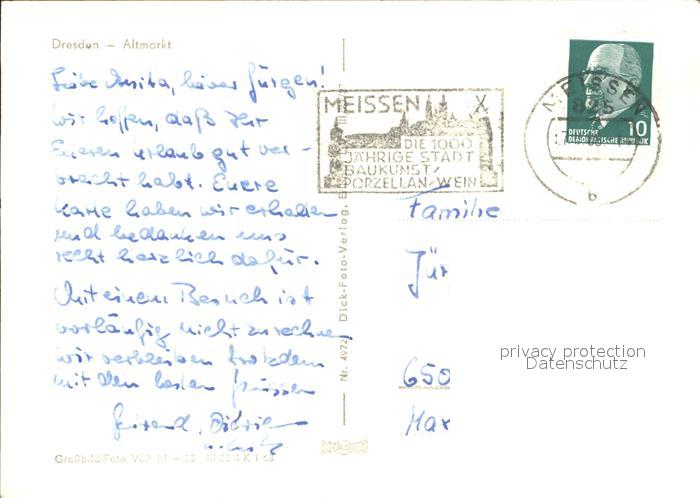 Dresden – Altmarkt
Liebe Anita, lieber Jürgen!
Wir hoffen, daß Ihr
Eueren Urlaub gut ver-
bracht habt. Euere
Karte haben wir erhalten
und bedanken uns
recht herzlich dafür.
Mit einem Besuch ist
vorläufig nicht zu rechnen
wir verbleiben trotzdem
mit den besten Grüssen
Großbild-Foto VEB
Nr. 4972 Dick-Foto-Verlag,
MEISSEN
DIE 1000
JÄHRIGE STADT
BAUKUNST/
PORZELLAN/WEIN
MEISSEN
b
10
DEUTSCHE
DEMOKRATISCHE REPUBLIK
Familie
Jür
650
Max
privacy protection
Datenschutz